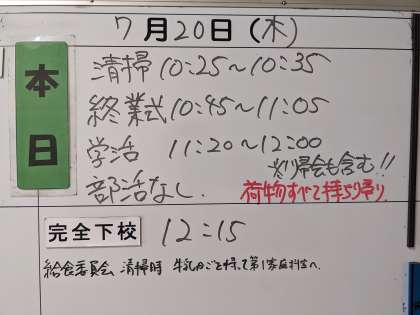 7月20日(木)
本日
清掃 10:25~10:35
終業式 10:45~11:05
学活 11:20~12:00
※帰会も含む!!
部活なし.
荷物すべて持ち帰り
完全下校 12:15
給食委員会 清掃時 牛乳かごを持って第1家庭科室へ.